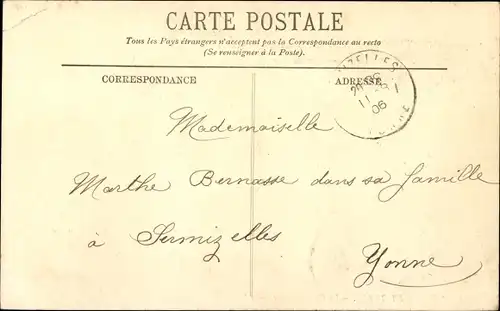 CARTE POSTALE
Tous les Pays étrangers n'acceptent pas la Correspondance au recto
(Se renseigner à la Poste).
CORRESPONDANCE
ADRESSE
IZELLES
11
06
YONNE
Mademoiselle
Marthe Bernasse dans sa famille
à Sermizelles
Yonne